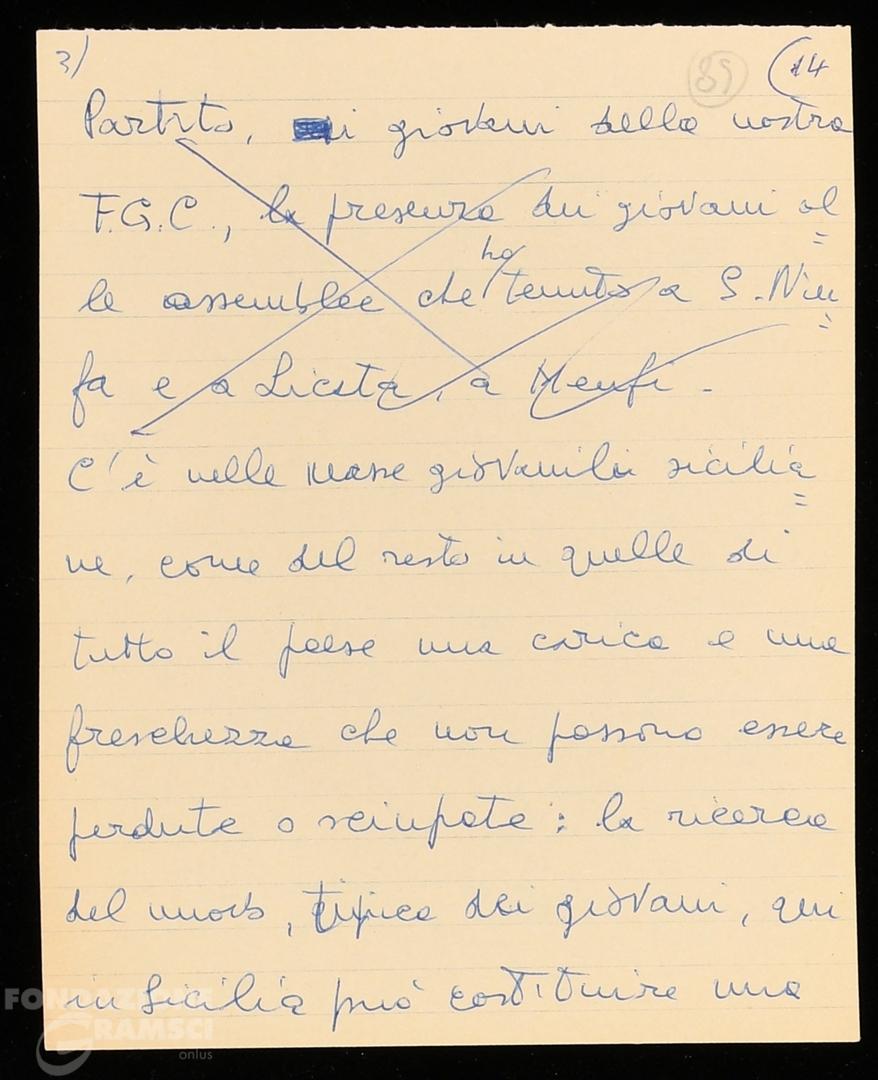 3/ 89 (14
Partito, i giovani della nostra
F.G.C., la presenza dei giovani al
=
ha
le assemblee che tenuto a S. Nin
=
fa e a Licata, a Menfi -
C'è nelle masse giovanili sicilia
=
ne, come del resto in quelle di
tutto il paese una carica e una
freschezza che non possono essere
perdute o sciupate: la ricerca
del nuovo, tipica dei giovani, qui
in Sicilia può costituire una
FONDAZIONE
GRAMSCI
onlus